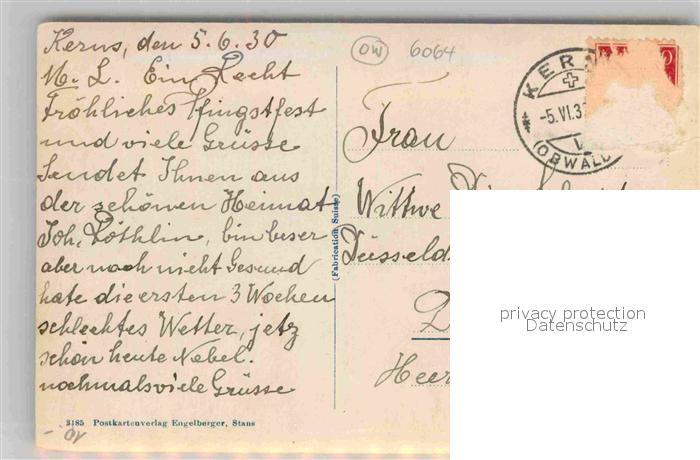 Kerns, den 5.6.30
M. L. Ein Recht
Fröhliches Pfingstfest
und viele Grüsse
Sendet Ihnen aus
der schönen Heimat
Joh. Röthlin, bin beser
aber noch nicht Gesund
hate die ersten 3 Wochen
schlechtes Wetter, jetz
schön heute Nebel.
nochmals viele Grüsse
3185 Postkartenverlag Engelberger, Stans
(Fabrication Suisse)
OW 6064
KERNS
-5.VI.3
(OBWALD
Frau
Wittwe
Düsseld
Heer
privacy protection
Datenschutz